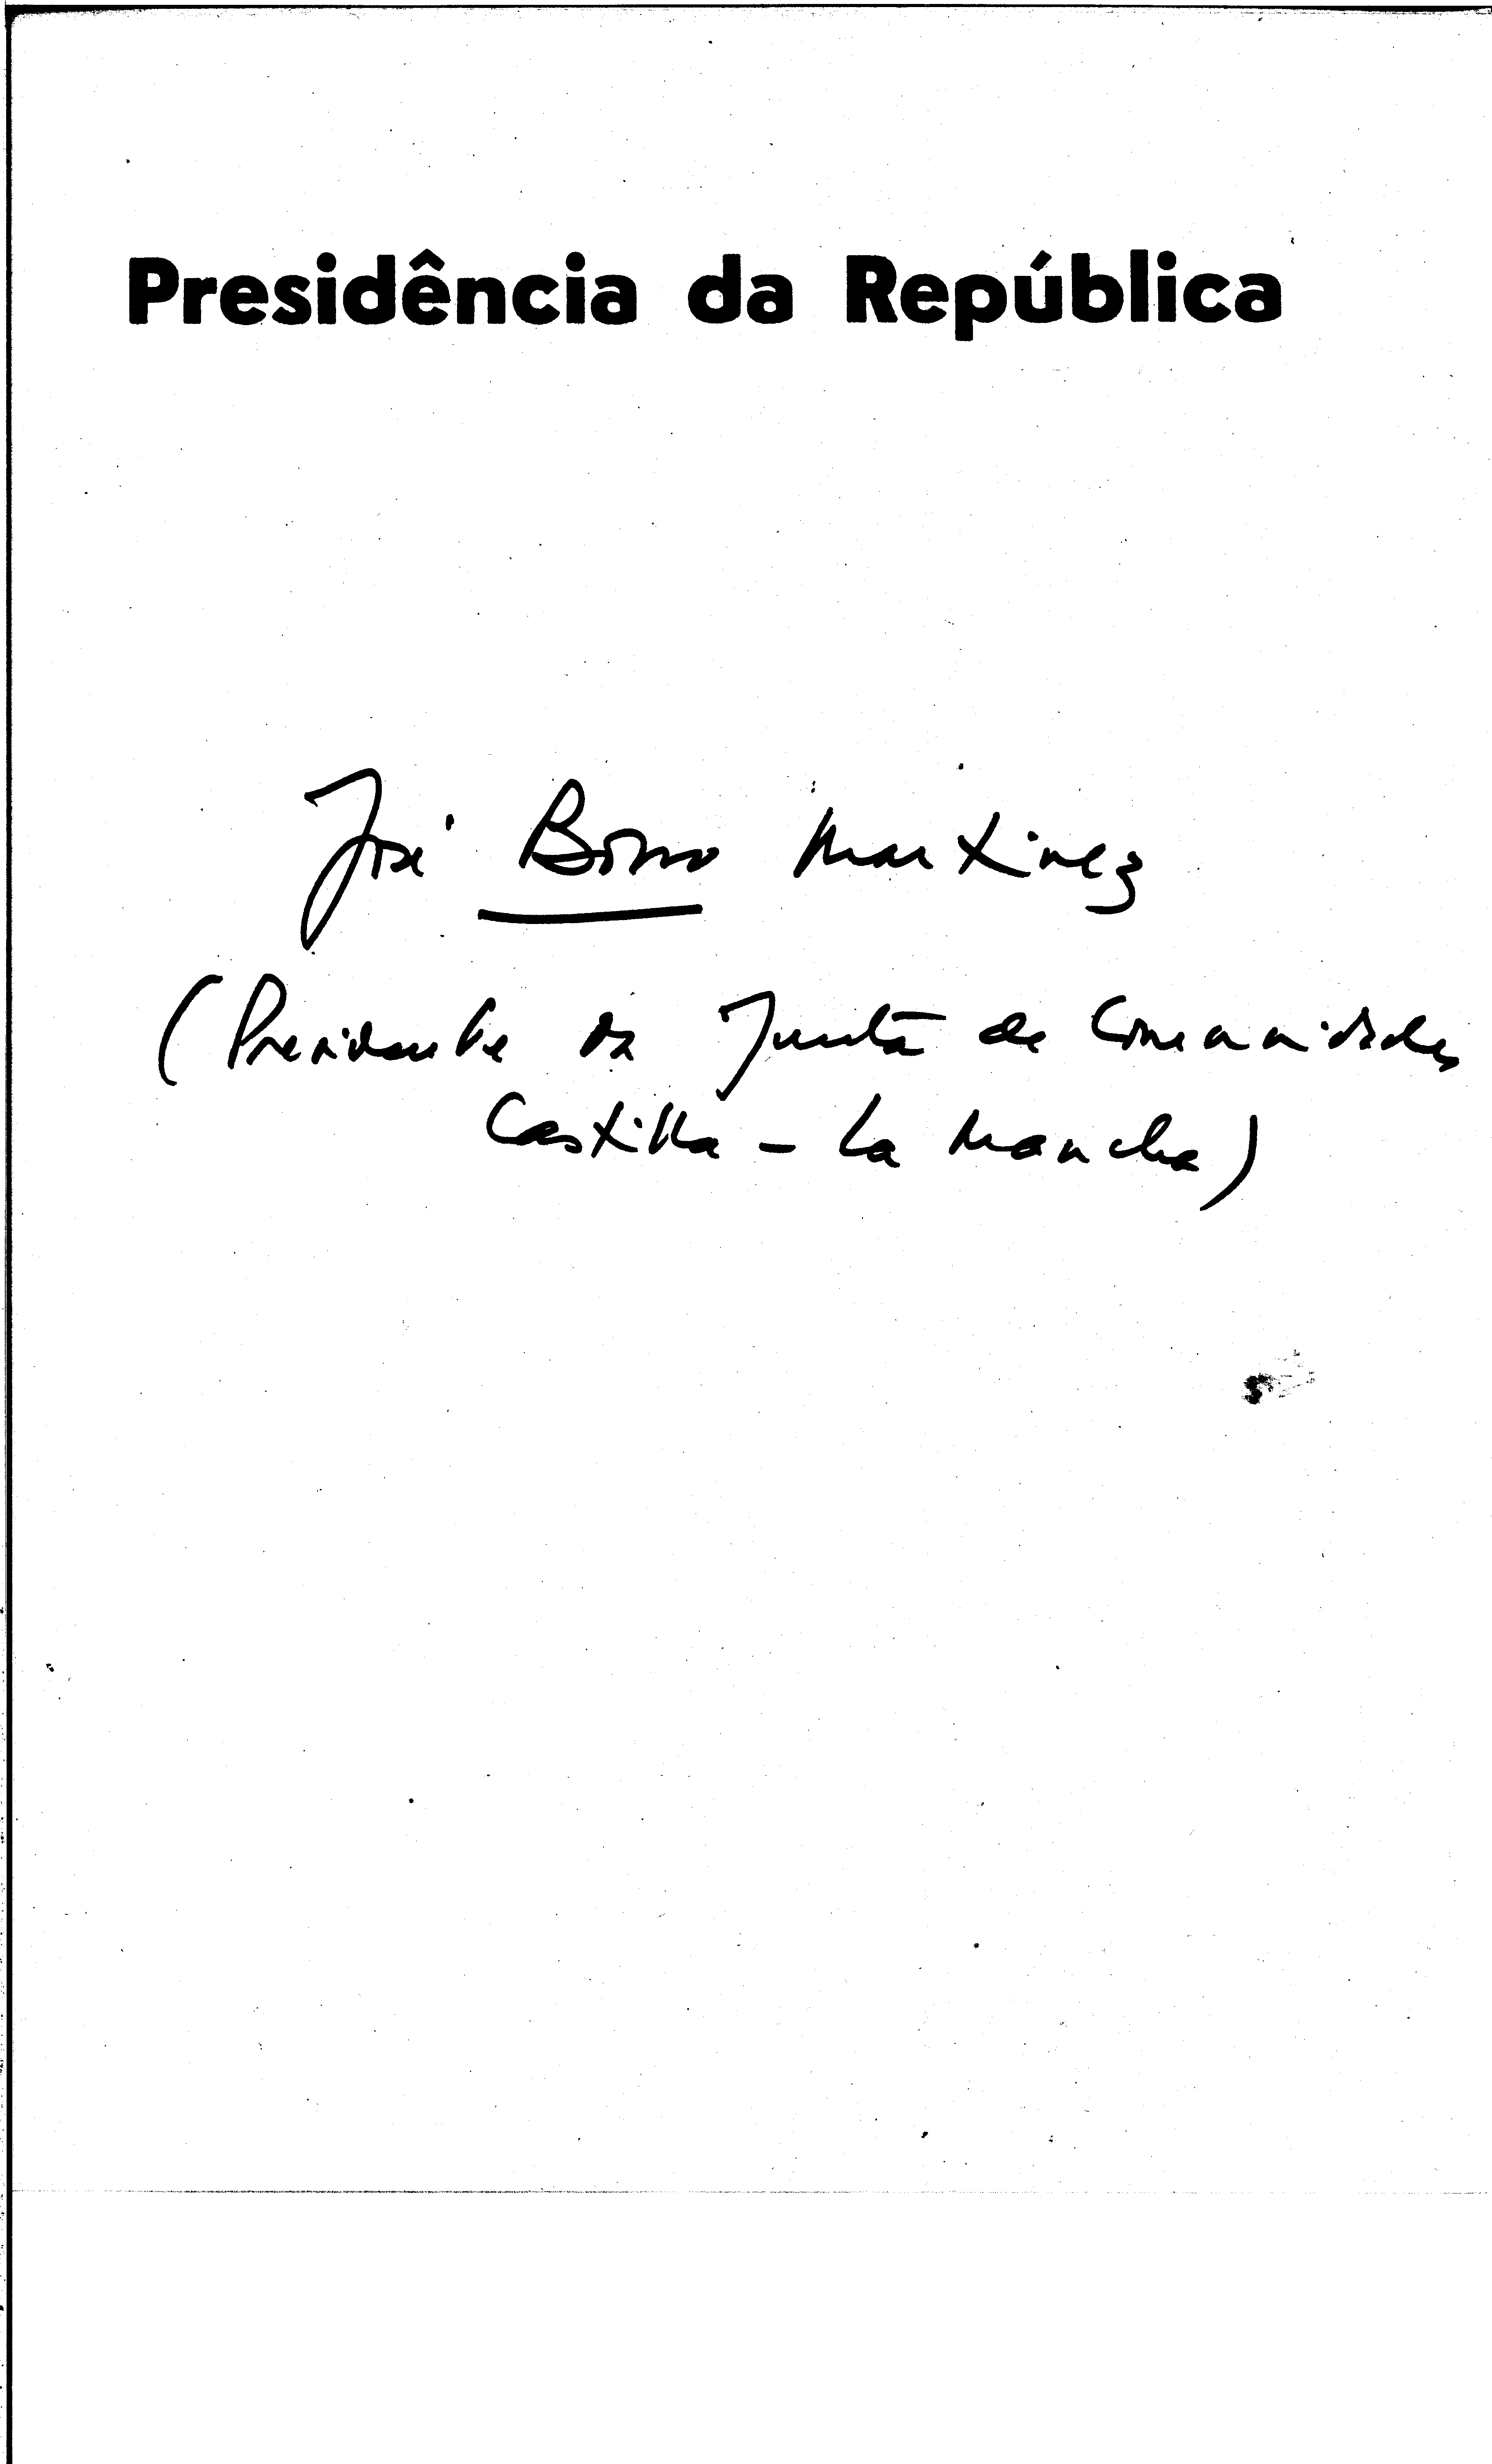 Presidência da República
José Bono Martinez
(Presidente da Junta de Comunidades
Castilla - La Mancha)